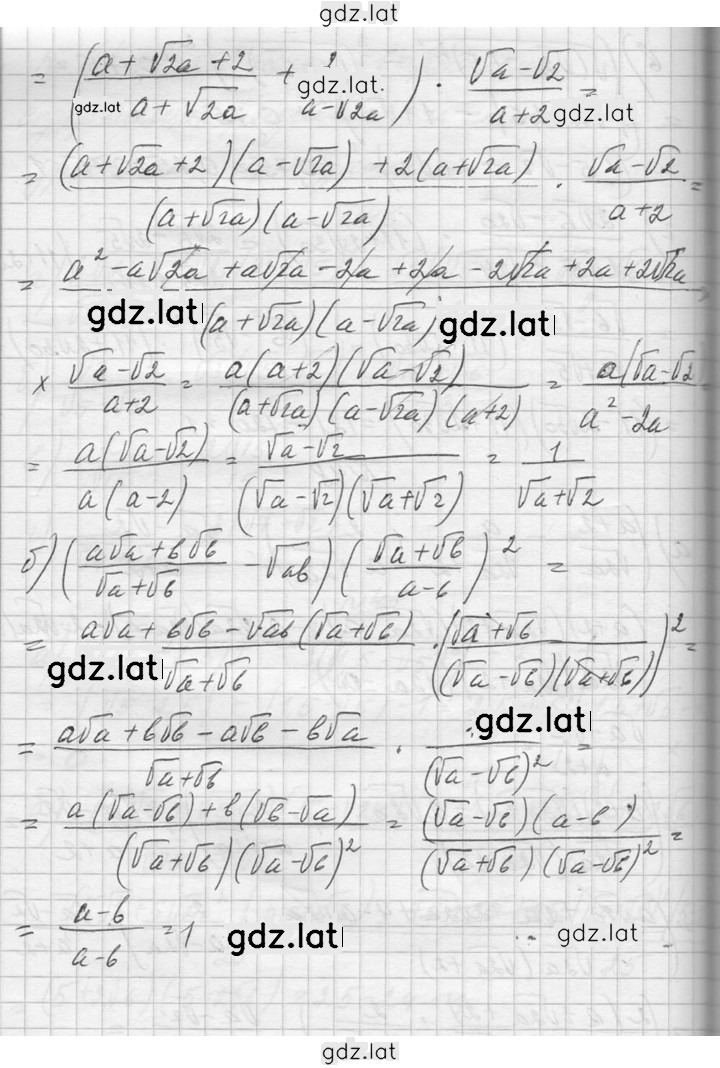 gdz.lat
= ((a + √2a + 2)/(a + √2a) + 2/(a - √2a)) · (√a - √2)/(a + 2) =
gdz.lat
gdz.lat
gdz.lat
= ((a + √2a + 2)(a - √2a) + 2(a + √2a))/((a + √2a)(a - √2a)) · (√a - √2)/(a + 2) =
= (a² - a√2a + a√2a - 2a + 2a - 2√2a + 2a + 2√2a)/((a + √2a)(a - √2a))
gdz.lat
gdz.lat
× (√a - √2)/(a + 2) = (a(a + 2)(√a - √2))/((a + √2a)(a - √2a)(a + 2)) = (a(√a - √2)/(a² - 2a)
= (a(√a - √2))/(a(a - 2)) = (√a - √2)/((√a - √2)(√a + √2)) = 1/(√a + √2)
б) ((a√a + b√b)/(√a + √b) - √ab) ((√a + √b)/(a - b))² =
= (a√a + b√b - √ab(√a + √b))/(√a + √b) · ((√a + √b)/((√a - √b)(√a + √b)))² =
gdz.lat
= (a√a + b√b - a√b - b√a)/(√a + √b) · /(√a - √b)² =
gdz.lat
= (a(√a - √b) + b(√b - √a))/((√a + √b)(√a - √b)²) = ((√a - √b)(a - b))/((√a + √b)(√a - √b)²) =
= (a - b)/(a - b) = 1
gdz.lat
gdz.lat
gdz.lat